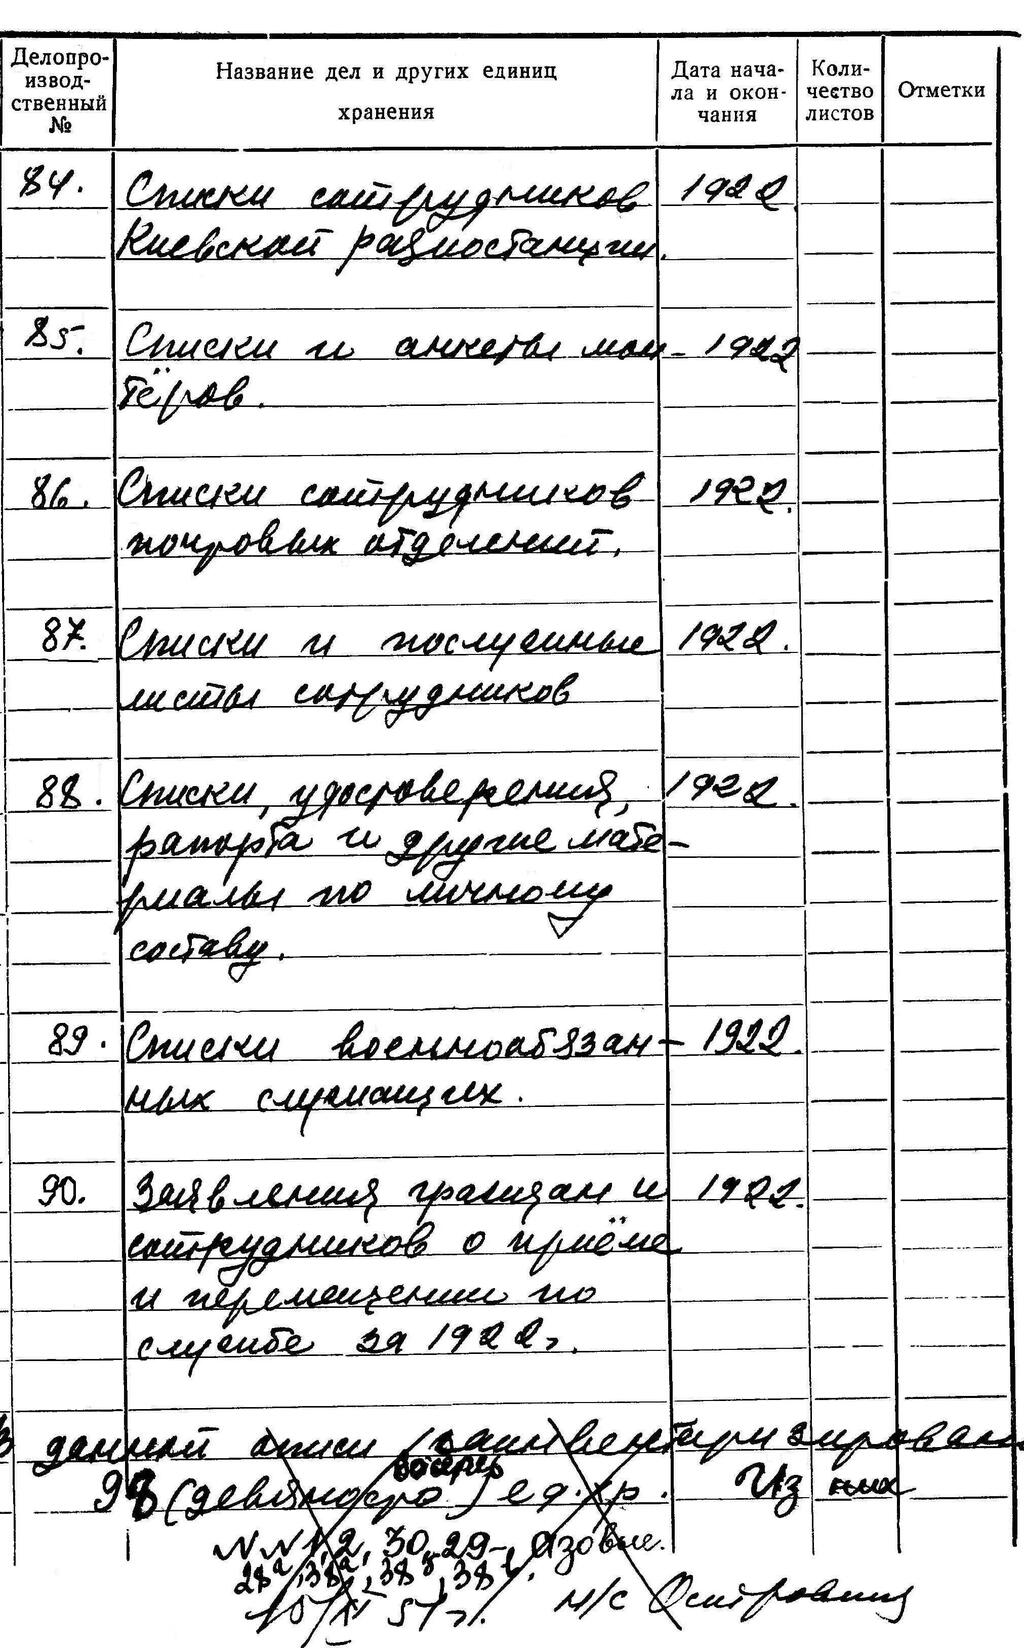 Делопро-
извод-
ственный
№
Название дел и других единиц
хранения
Дата нача-
ла и окон-
чания
Коли-
чество
листов
Отметки
84. Списки сотрудников 1922.
Киевской радиостанции.
85. Списки и анкеты мон- 1922
тёров.
86. Списки сотрудников 1922.
почтовых отделений.
87. Списки и послужные 1922.
листы сотрудников
88. Списки, удостоверения, 1922.
рапорта и другие мате-
риалы по личному
составу.
89. Списки военнообязан- 1922.
ных служащих.
90. Заявления граждан и 1922.
сотрудников о приёме
и перемещении по
службе за 1922 г.
В данной описи заинвентаризирован
(девяносто) ед. хр. Из них
NN 1, 2, 30, 29-
28а, 38а, 38
10/II 51 г. н/с